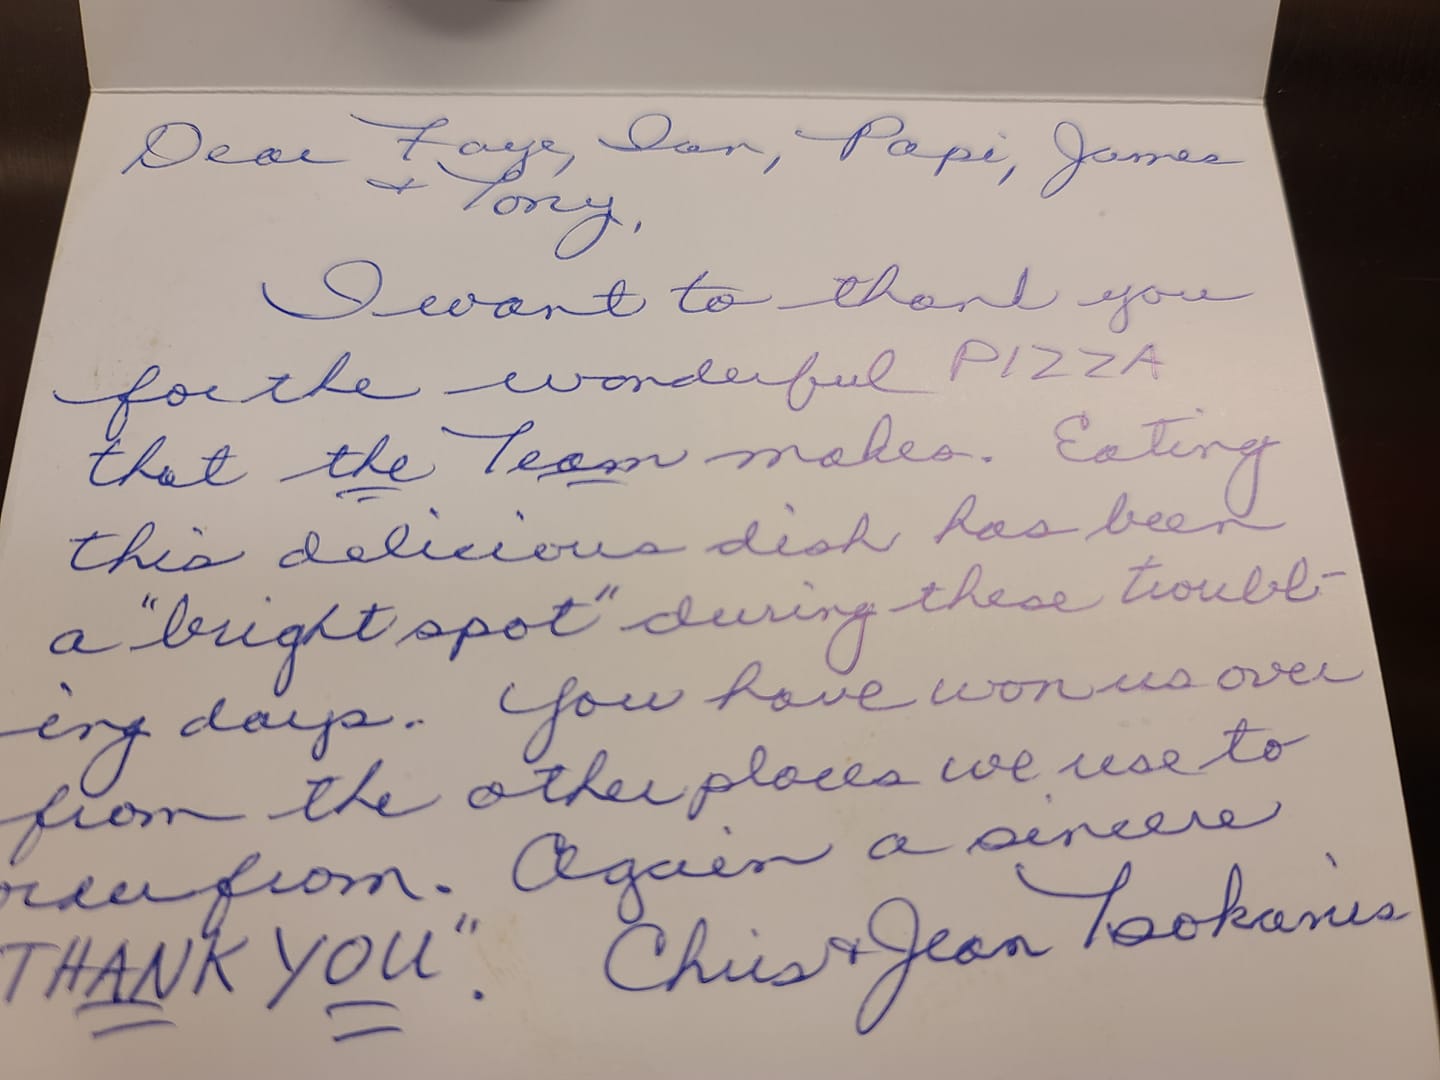 Dear Faye, Ian, Papi, James
+ Tony,
I want to thank you
for the wonderful PIZZA
that the Team makes. Eating
this delicious dish has been
a "bright spot" during these troubl-
ing days. You have won us over
from the other places we use to
order from. Again a sincere
THANK YOU". Chris + Jean Tsokanis